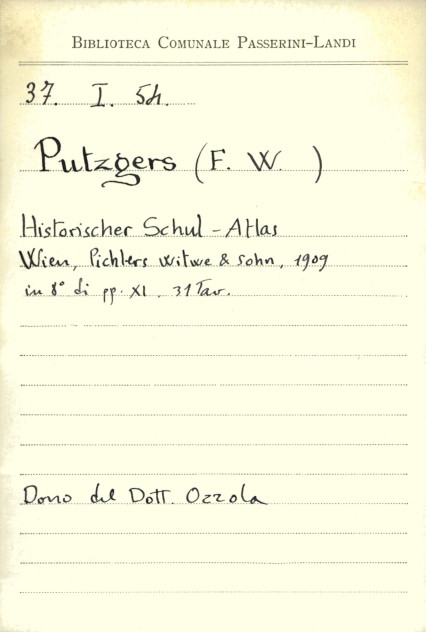 Biblioteca Comunale Passerini-Landi
37. I. 54.
Putzgers (F. W. )
Historischer Schul-Atlas
Wien, Pichlers Witwe & Sohn, 1909
in 8° di pp. XI. 31 Tav.
Dono del Dott. Ozzola